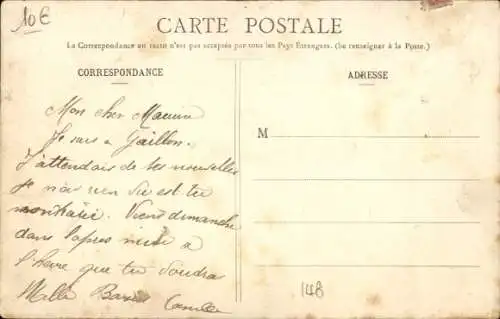 10€
CARTE POSTALE
La Correspondance au recto n'est pas acceptée par tous les Pays Étrangers. (Se renseigner à la Poste.)
CORRESPONDANCE
ADRESSE
M
Mon cher Maurice
Je suis a Gaillon.
J'attendais de tes nouvelles
Je n'ai rien
Vient dimanche
dans lapres midi a
l'heure que tu voudras
Mille Baisers Camille
148